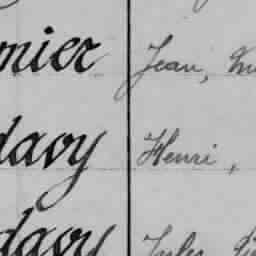 mier Jean,
davy Henri,
davy Jules